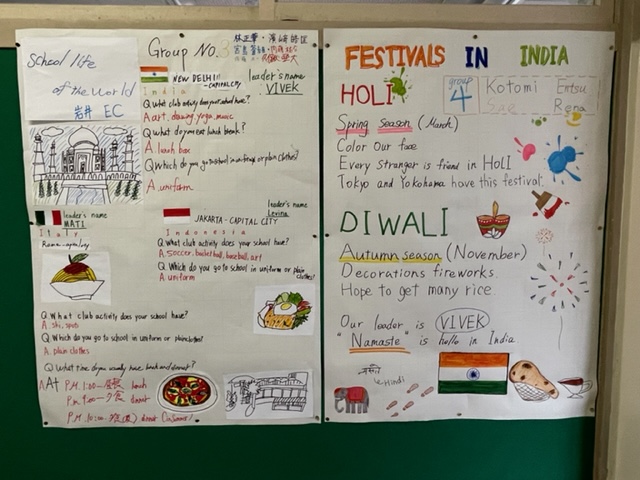 School life
of the World
岩井 EC
Group No.3
NEW DELHI - CAPITAL CITY
India
leader's name
VIVEK
Q. what club activity does your school have?
A. art, drawing, yoga, music
Q. what do you eat lunch break?
A. lunch box
Q. Which do you go to school in uniform or plain clothes?
A. uniform
leader's name
MATI
Italy
Rome - capital city
JAKARTA - CAPITAL CITY
Indonesia
leader's name
Levina
Q. What club activity does your school have?
A. soccer, basketball, baseball, art
Q. Which do you go to school in uniform or plain clothes?
A. uniform
Q. What club activity does your school have?
A. ski, spots
Q. Which do you go to school in uniform or plain clothes?
A. plain clothes
Q. What time do you usually have lunch and dinner?
At P.M. 1:00 ― 昼食 lunch
P.M. 10:00
FESTIVALS IN INDIA
HOLI
group
4
Kotomi Entsu
Sae Rena
Spring season (March)
Color Our face
Every Stranger is friend in HOLI
Tokyo and Yokohama have this festival.
DIWALI
Autumn season (November)
Decorations fireworks.
Hope to get many rice
Our leader is VIVEK
"Namaste" is hello in India
नमस्ते
Hindi